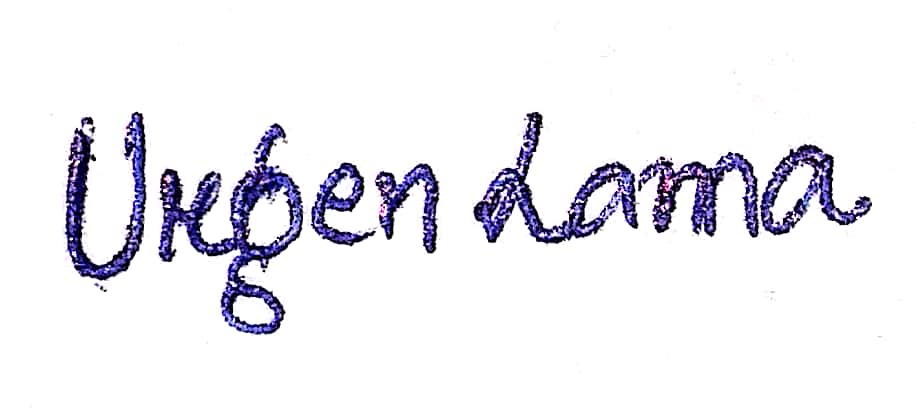 Urgen Lama